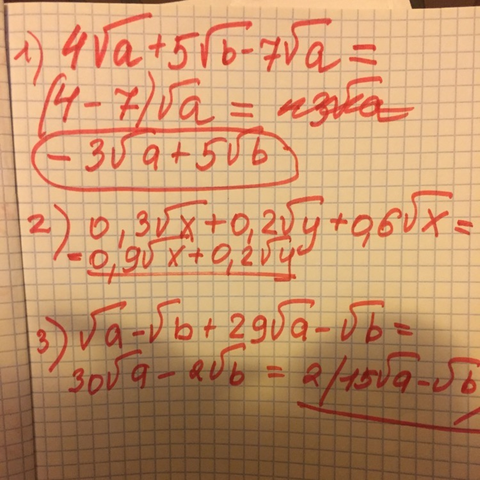 1) 4√a + 5√b - 7√a =
(4 - 7)√a =
- 3√a + 5√b
2) 0,3√x + 0,2√y + 0,6√x =
= 0,9√x + 0,2√y
3) √a - √b + 29√a - √b =
30√a - 2√b = 2(15√a - √b